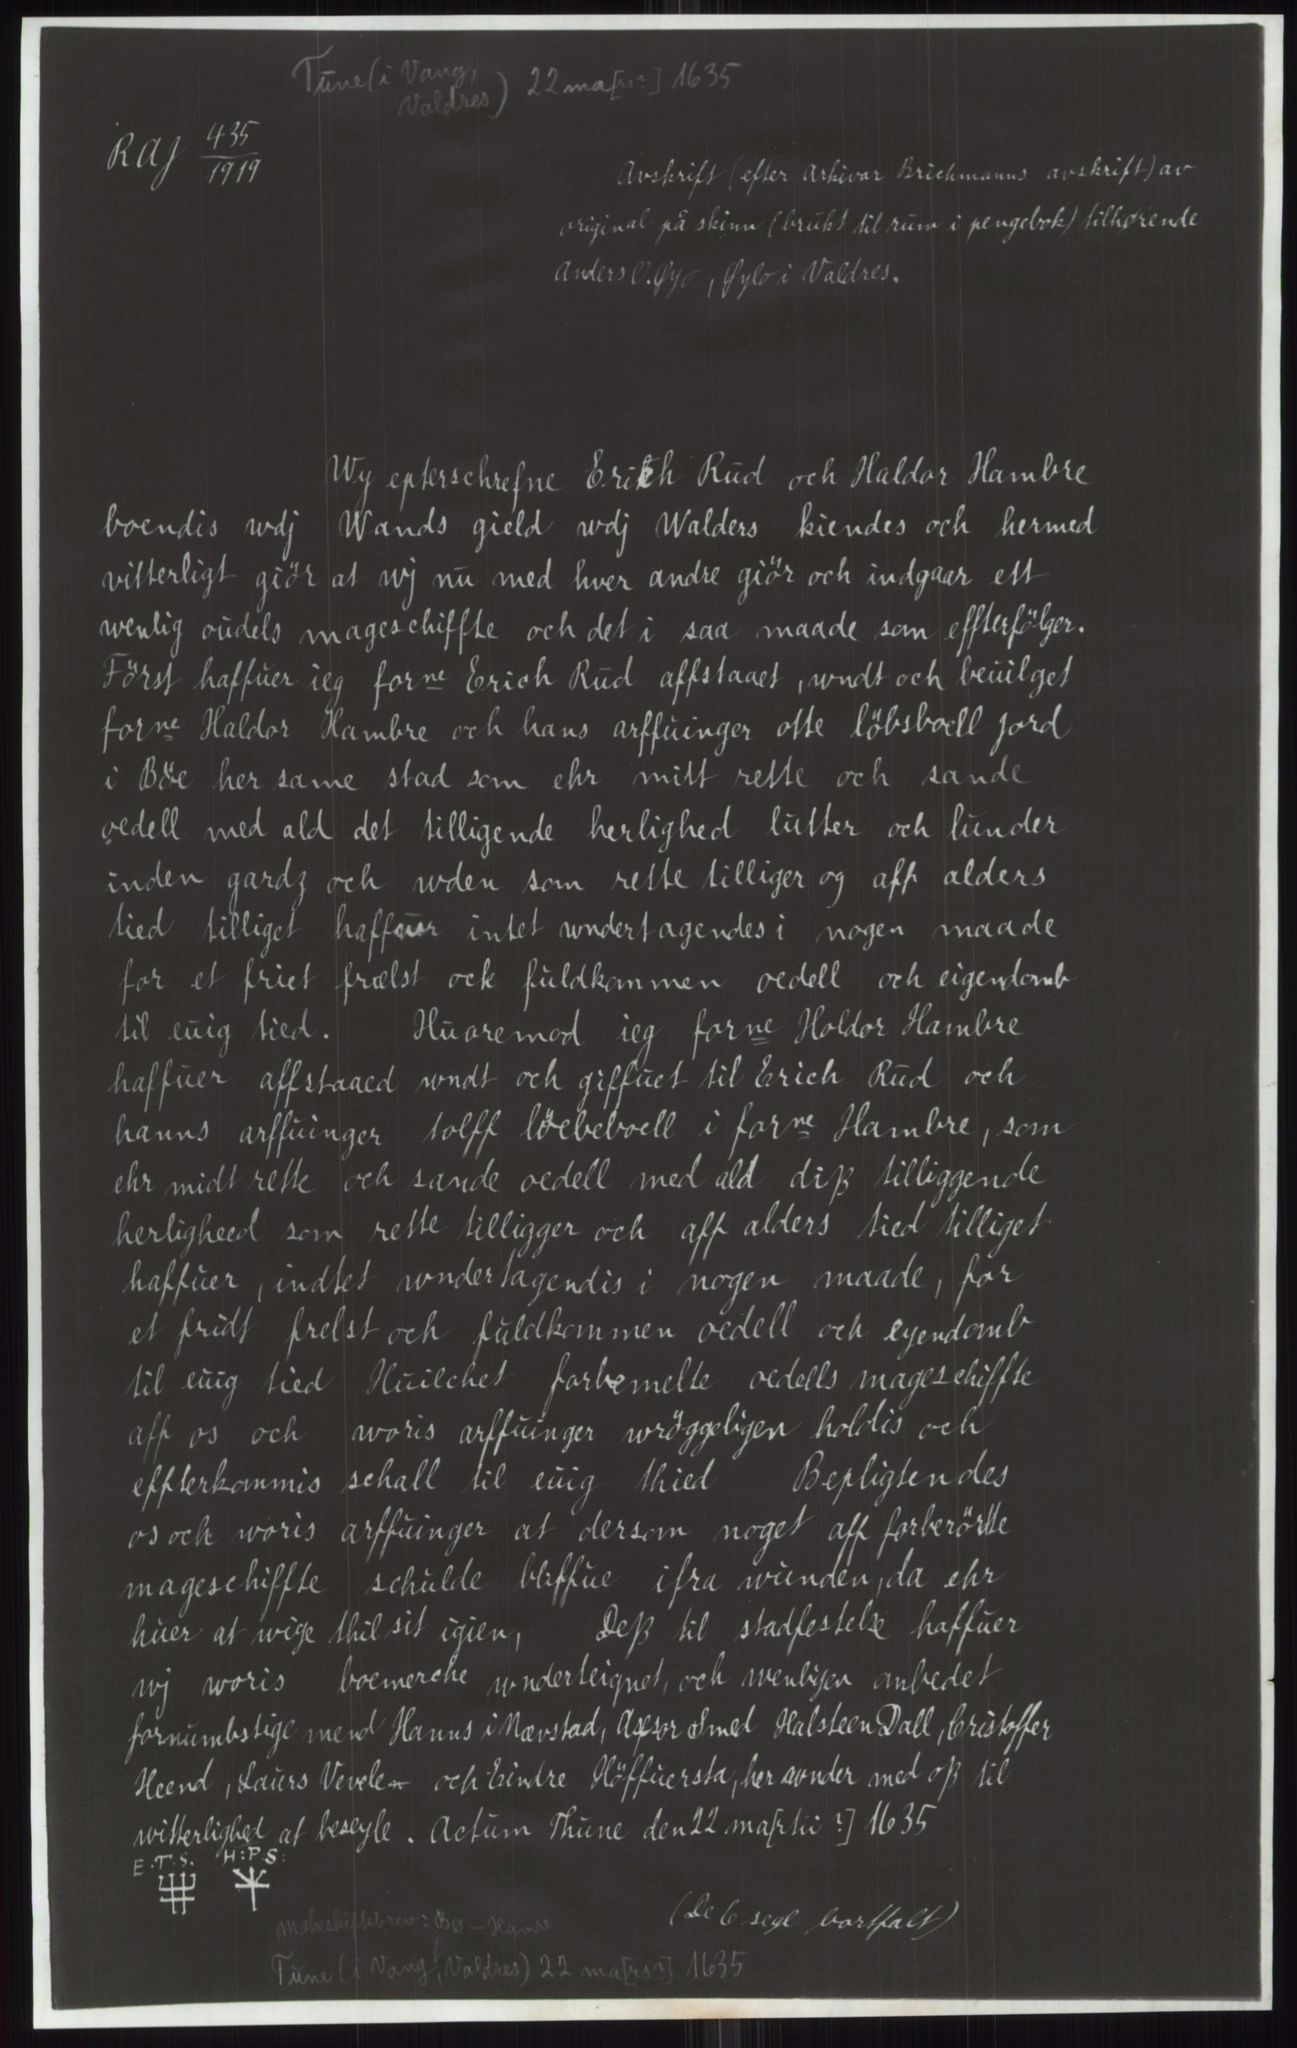 Tune (i Vang,
Valdres) 22 ma[rs?] 1635
RAJ 435
1919
Avskrift (efter Arkivar Brichmanns avskrift) av
original på skinn (brukt til rum i pengebok) tilhørende
Anders O. Øyo, Øylo i Valdres.
Wy epterschrefne Erich Rud och Haldor Hambre
boendis wdj Wands gield wdj Walders kiendes och hermed
vitterligt giör at wj nu med hver andre giör och indgaar ett
wenlig oudels mageschiffte och det i saa maade som effterfölger.
Först haffuer ieg forne Erich Rud affstaaet, wndt och beuilget
forne Haldor Hambre och hans arffuinger otte löbsboell jord
i Böe her same stad som ehr mitt rette och sande
oedell med ald det tilligende herlighed lutter och lunder
inden gardz och wden som rette tilliger og aff alders
tied tilliget haffuer intet wndertagendes i nogen maade
for et friet frælst ock fuldkommen oedell och eigendomb
til euig tied. Huoremod ieg forne Holdor Hambre
haffuer affstaaed wndt och giffuet til Erich Rud och
hanns arffuinger tolff löebeboell i forne Hambre, som
ehr midt rette och sande oedell med ald diß tilliggende
herligheed som rette tilligger och aff alders tied tilliget
haffuer, indtet wndertagendis i nogen maade, for
et fridt frelst och fuldkommen oedell och eyendomb
til euig tied Huilchet forbemelte oedells mageschiffte
aff os och woris arffuinger wröggeligen holdis och
effterkommis schall til euig thied Bepligtendes
os och woris arffuinger at dersom noget aff forberörtte
mageschiffte schulde bliffue ifra wunden, da ehr
huer at wige thil sit igien, Deß til stadfestelse haffuer
wj woris boemerche wnderteignet, och wenligen anbedet
fornumbstige mend Hanns i Nævstad, Assor Smed Halsteen Dall, Cristoffer
Heend, Laurs Vevele och Eindre Höffuersta, her wnder med oß til
witterlighed at beseyle. Actum Thune den 22 ma[rtii ?] 1635
E.T.S. H:P.S:
(De 6 segl bortfalt)
Makeskiftebrev: Bø - Hamre
Tune (i Vang, Valdres) 22 ma[rs?] 1635